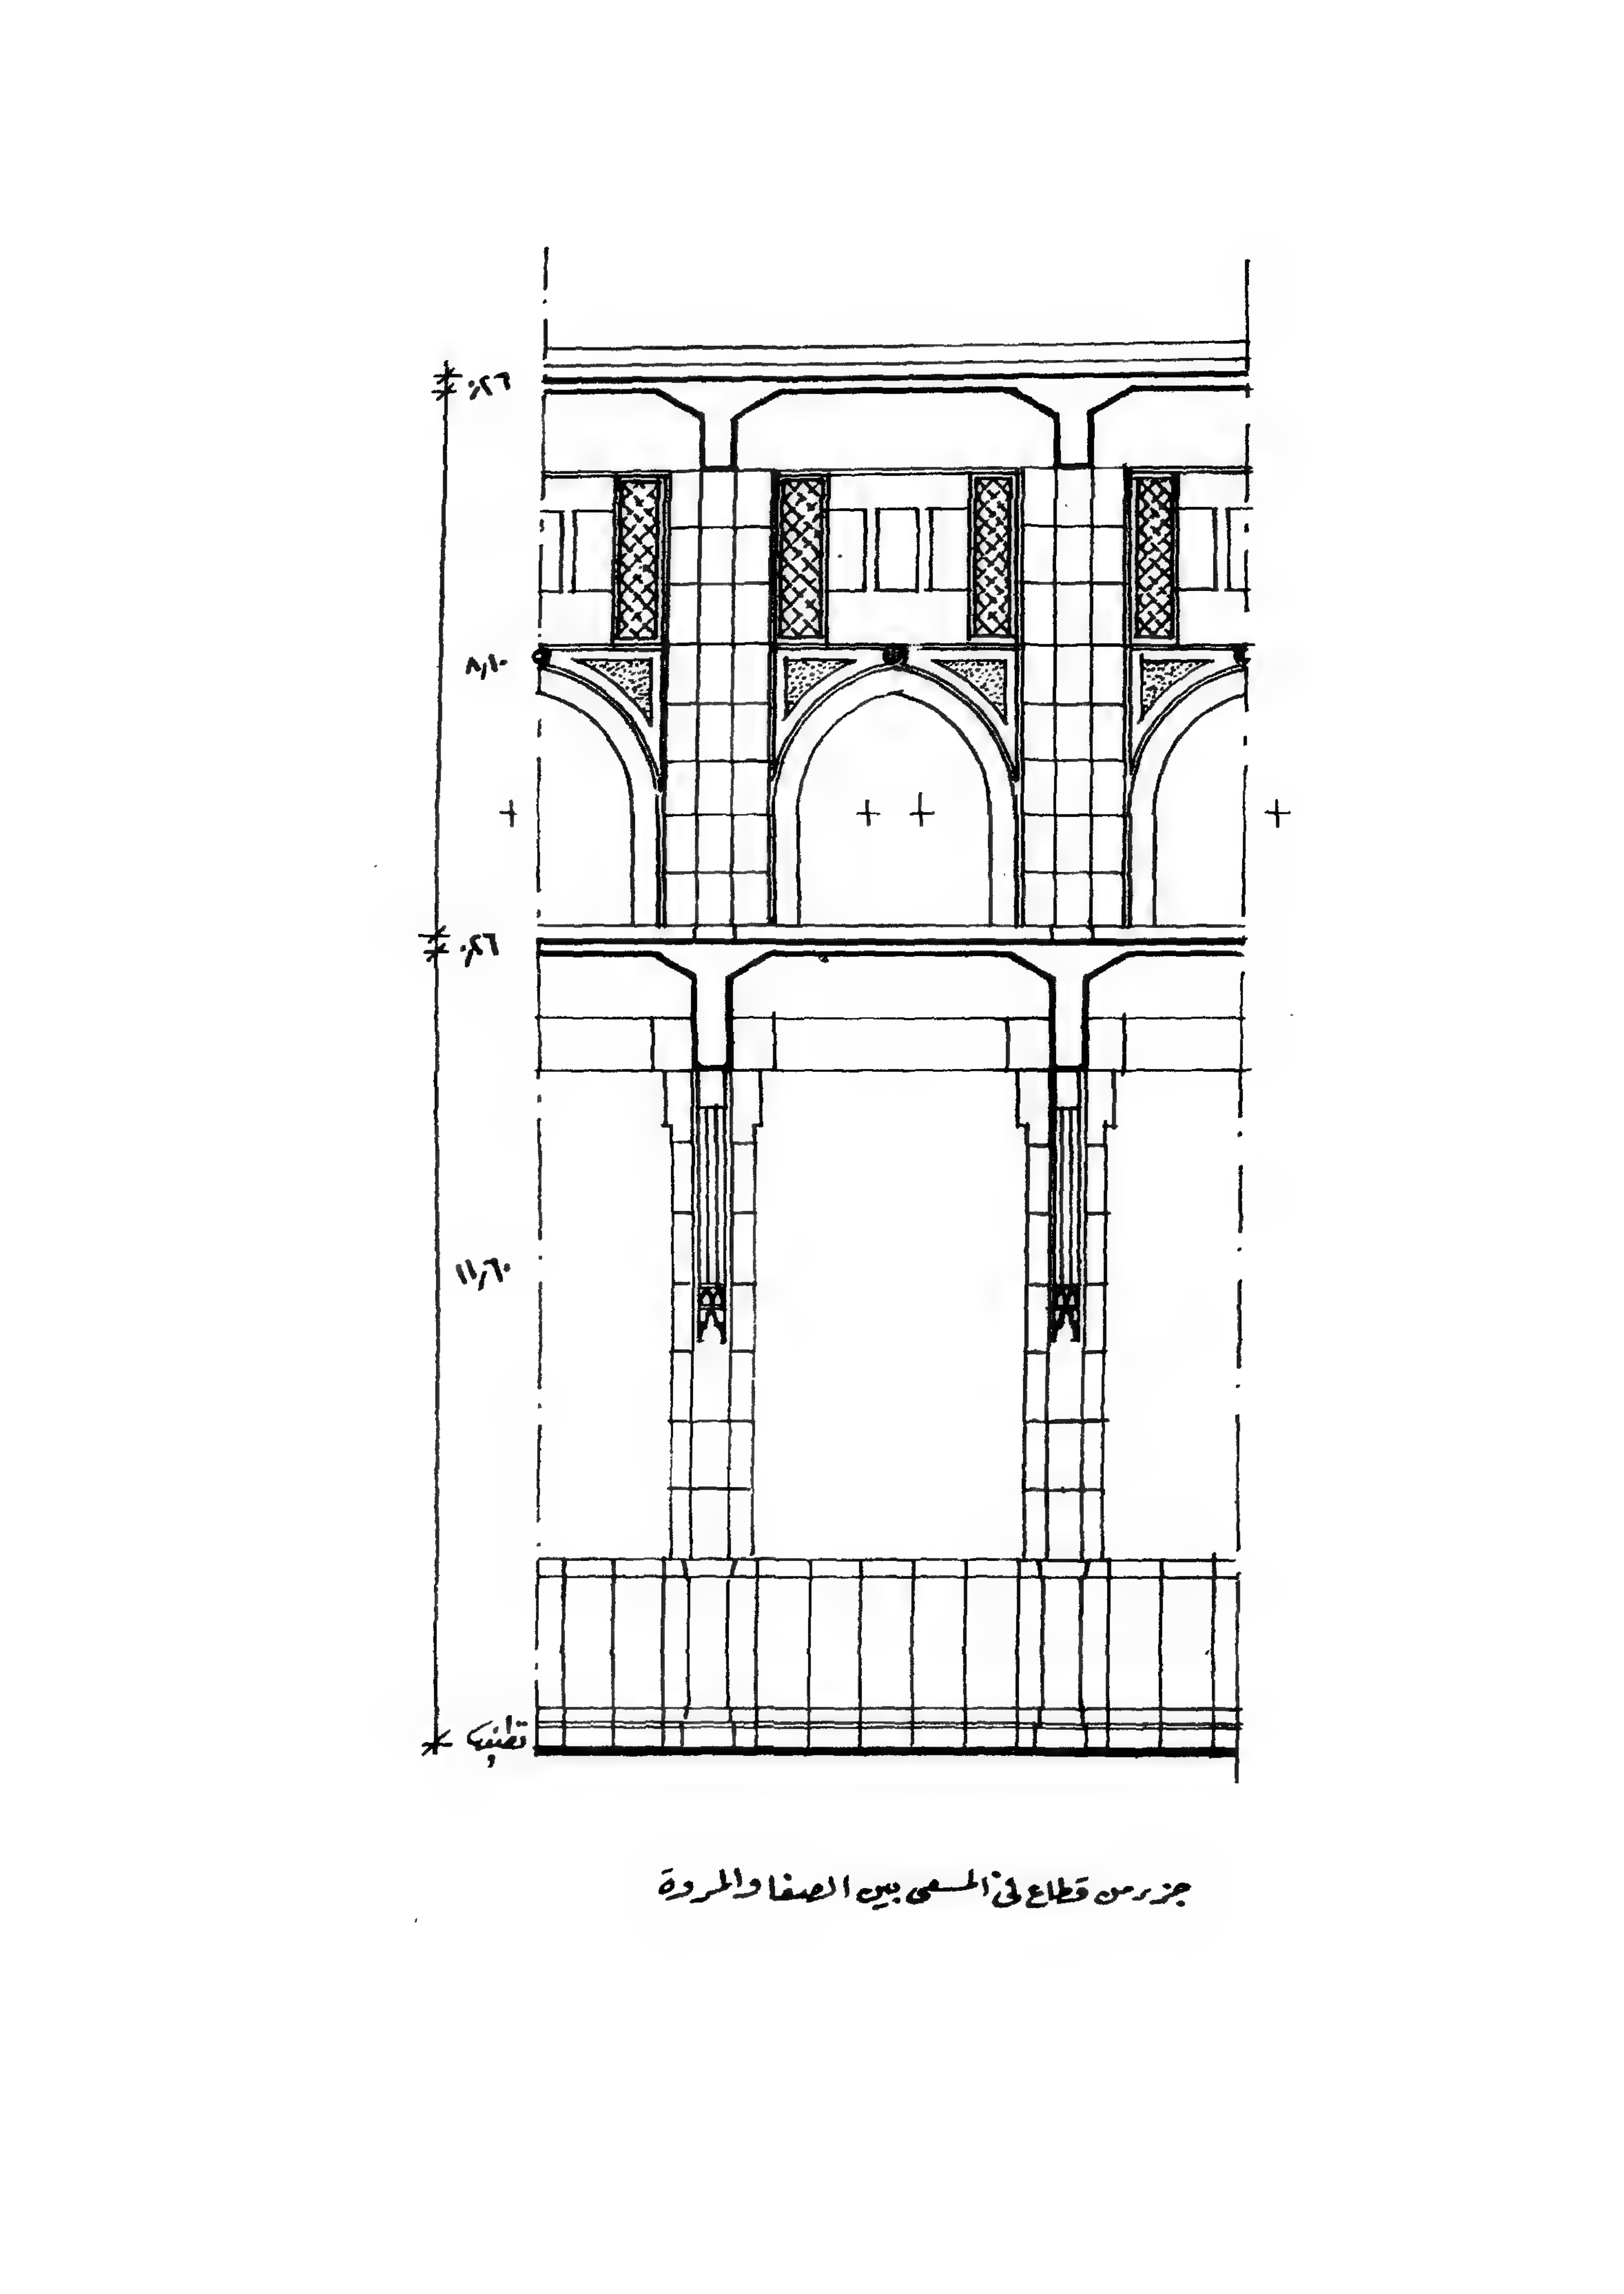 ٠,٢٦
٨,١٠
٠,٢٦
١١,٦٠
جزء من قطاع في المسعى بين الصفا والمروة